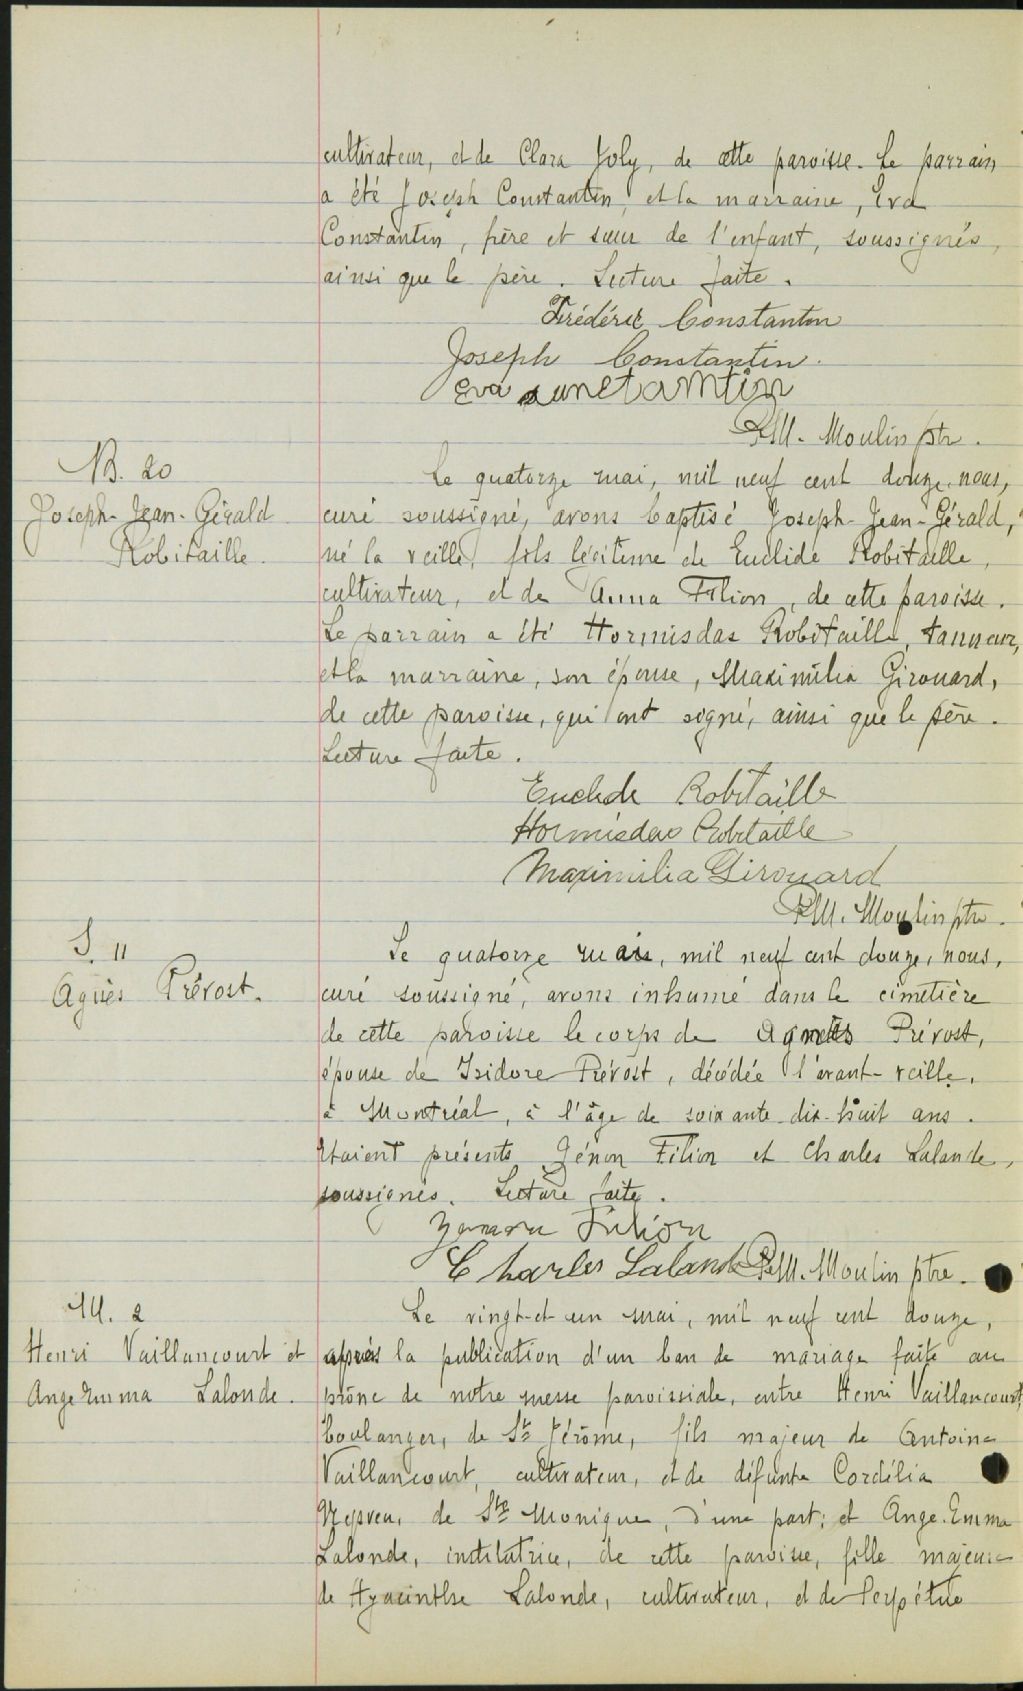 cultivateur, et de Clara Joly, de cette paroisse. Le parrain
a été Joseph Constantin, et la marraine, Eva
Constantin, frère et sœur de l'enfant, soussignés,
ainsi que le père. Lecture faite.
Frédéric Constantin
Joseph Constantin.
Eva
Moulin ptr.
B. 20
Joseph-Jean-Gérald
Robitaille.
Le quatorze mai, mil neuf cent douze, nous,
curé soussigné, avons baptisé Joseph-Jean-Gérald,
né la veille, fils légitime de Euclide Robitaille,
cultivateur, et de Anna Filion, de cette paroisse.
Le parrain a été Hormisdas Robitaille, tanneur,
et la marraine, son épouse, Maximilia Girouard,
de cette paroisse, qui ont signé, ainsi que le père.
Lecture faite.
Euclide Robitaille
Hormisdas Robitaille
Maximilia Girouard
Moulin ptre.
S. 11
Agnès Prévost.
Le quatorze mai, mil neuf cent douze, nous,
curé soussigné, avons inhumé dans le cimetière
de cette paroisse le corps de Agnès Prévost,
épouse de Isidore Prévost, décédée l'avant-veille,
à Montréal, à l'âge de soixante-dix-huit ans.
Etaient présents Zénon Filion et Charles Lalande,
soussignés. Lecture faite.
Filion
Charles Lalande Moulin ptre.
M. 2
Henri Vaillancourt et
Ange Emma Lalonde.
Le vingt-et-un mai, mil neuf cent douze,
après la publication d'un ban de mariage faite au
prône de notre messe paroissiale, entre Henri Vaillancourt,
boulanger, de St Jérôme, fils majeur de Antoine
Vaillancourt, cultivateur, et de défunte Cordélia
de Ste Monique, d'une part; et Ange-Emma
Lalonde, institutrice, de cette paroisse, fille majeure
de Hyacinthe Lalonde, cultivateur, et de Perpétue